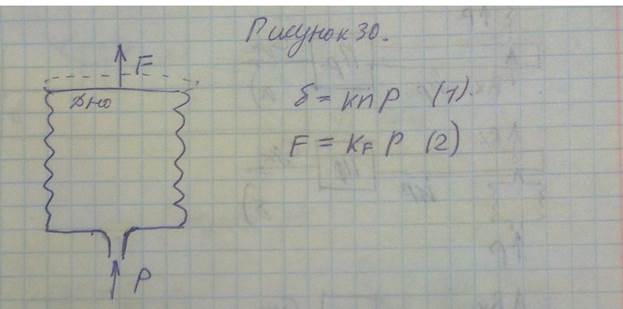 Рисунок 30.
F
дно
δ = кп P (1).
F = кF P (2)
P